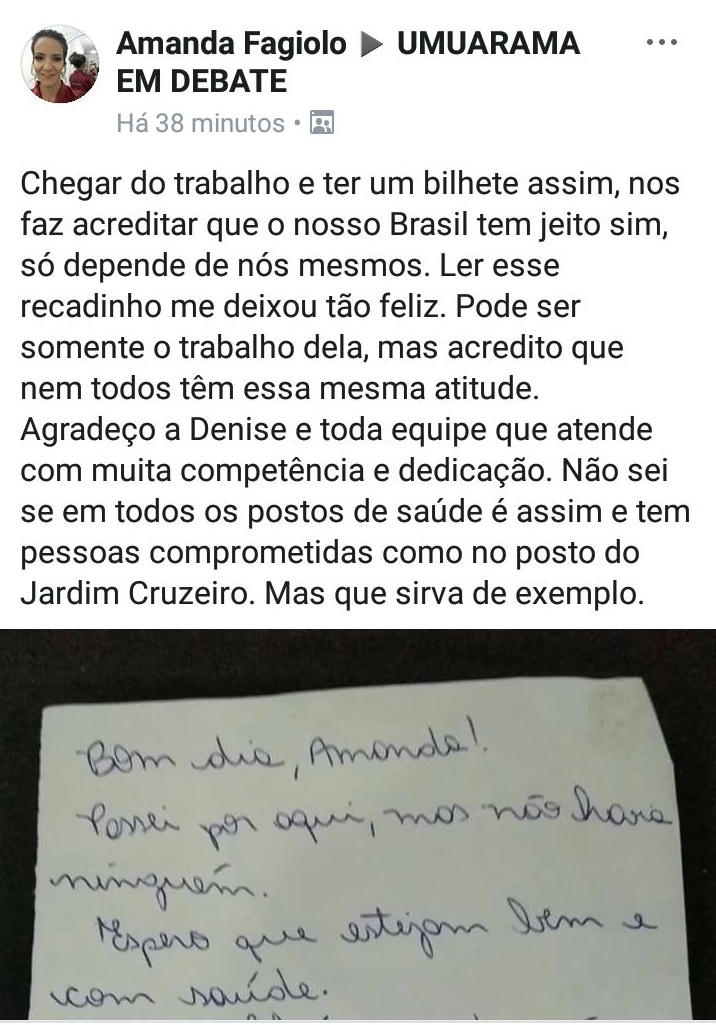 Amanda Fagiolo ▶ UMUARAMA
EM DEBATE
Há 38 minutos •
Chegar do trabalho e ter um bilhete assim, nos
faz acreditar que o nosso Brasil tem jeito sim,
só depende de nós mesmos. Ler esse
recadinho me deixou tão feliz. Pode ser
somente o trabalho dela, mas acredito que
nem todos têm essa mesma atitude.
Agradeço a Denise e toda equipe que atende
com muita competência e dedicação. Não sei
se em todos os postos de saúde é assim e tem
pessoas comprometidas como no posto do
Jardim Cruzeiro. Mas que sirva de exemplo.
Bom dia, Amanda!
Passei por aqui, mas não havia
ninguém.
Espero que estejam bem e
com saúde.